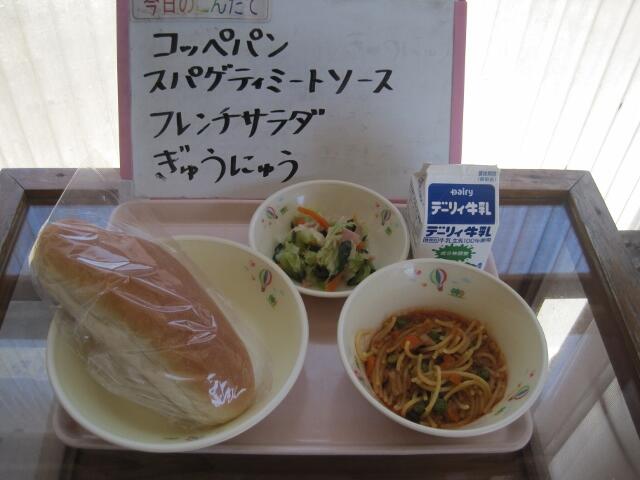 今日のこんだて
コッペパン
スパゲティミートソース
フレンチサラダ
ぎゅうにゅう
Dairy
デーリィ牛乳
デーリィ牛乳
生乳100%使用